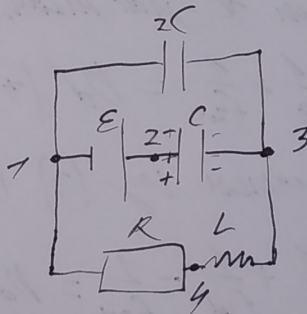 2C
ε 2 + C -
1 + - 3
+ -
R L
4